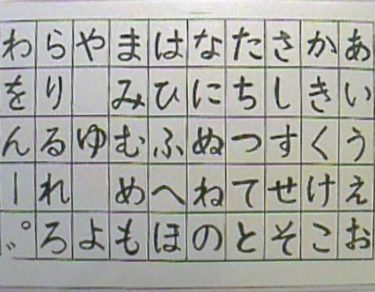 あいうえお
かきくけこ
さしすせそ
たちつてと
なにぬねの
はひふへほ
まみむめも
やゆよ
らりるれろ
わをんー゛゜